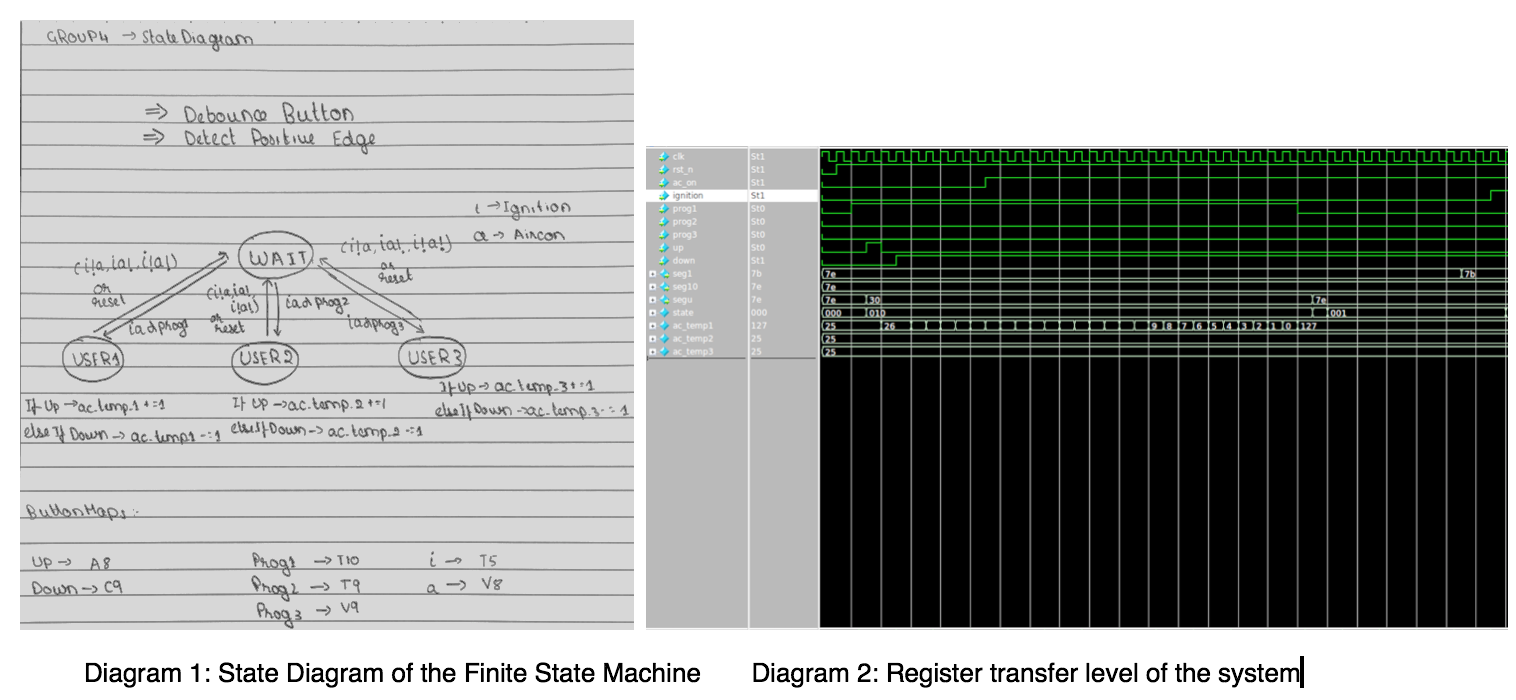 GROUP4 → State Diagram
⇒ Debounce Button
⇒ Detect Positive Edge
i → Ignition
a → Aircon
WAIT
(i!a, ia!, i!a!)
or
reset
(i!a, ia!
i!a!)
or
reset
(i!a, ia!, i!a!)
or
reset
iadprog1
iadprog2
iadprog3
USER1
USER2
USER3
If Up → ac.temp.1 +=1
else If Down → ac.temp1 -=1
If Up → ac.temp.2 +=1
else If Down → ac.temp.2 -=1
If Up → ac.temp.3 +=1
else If Down → ac.temp.3 -=1
Button Maps :-
UP → A8
Down → C9
Prog1 → T10
Prog2 → T9
Prog3 → V9
i → T5
a → V8
clk St1
rst_n St1
ac_on St1
ignition St1
prog1 St0
prog2 St0
prog3 St0
up St0
down St1
seg1 7b 7e 7b
seg10 7e 7e
segu 7e 7e 30 7e
state 000 000 010 001
ac_temp1 127 25 26 9 8 7 6 5 4 3 2 1 0 127
ac_temp2 25 25
ac_temp3 25 25
Diagram 1: State Diagram of the Finite State Machine
Diagram 2: Register transfer level of the system